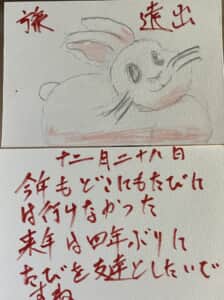 遠出
十二月二十八日
今年もどこにもたびに
は行けなかった
来年は四年ぶりに
たびを友達としたいで
すね